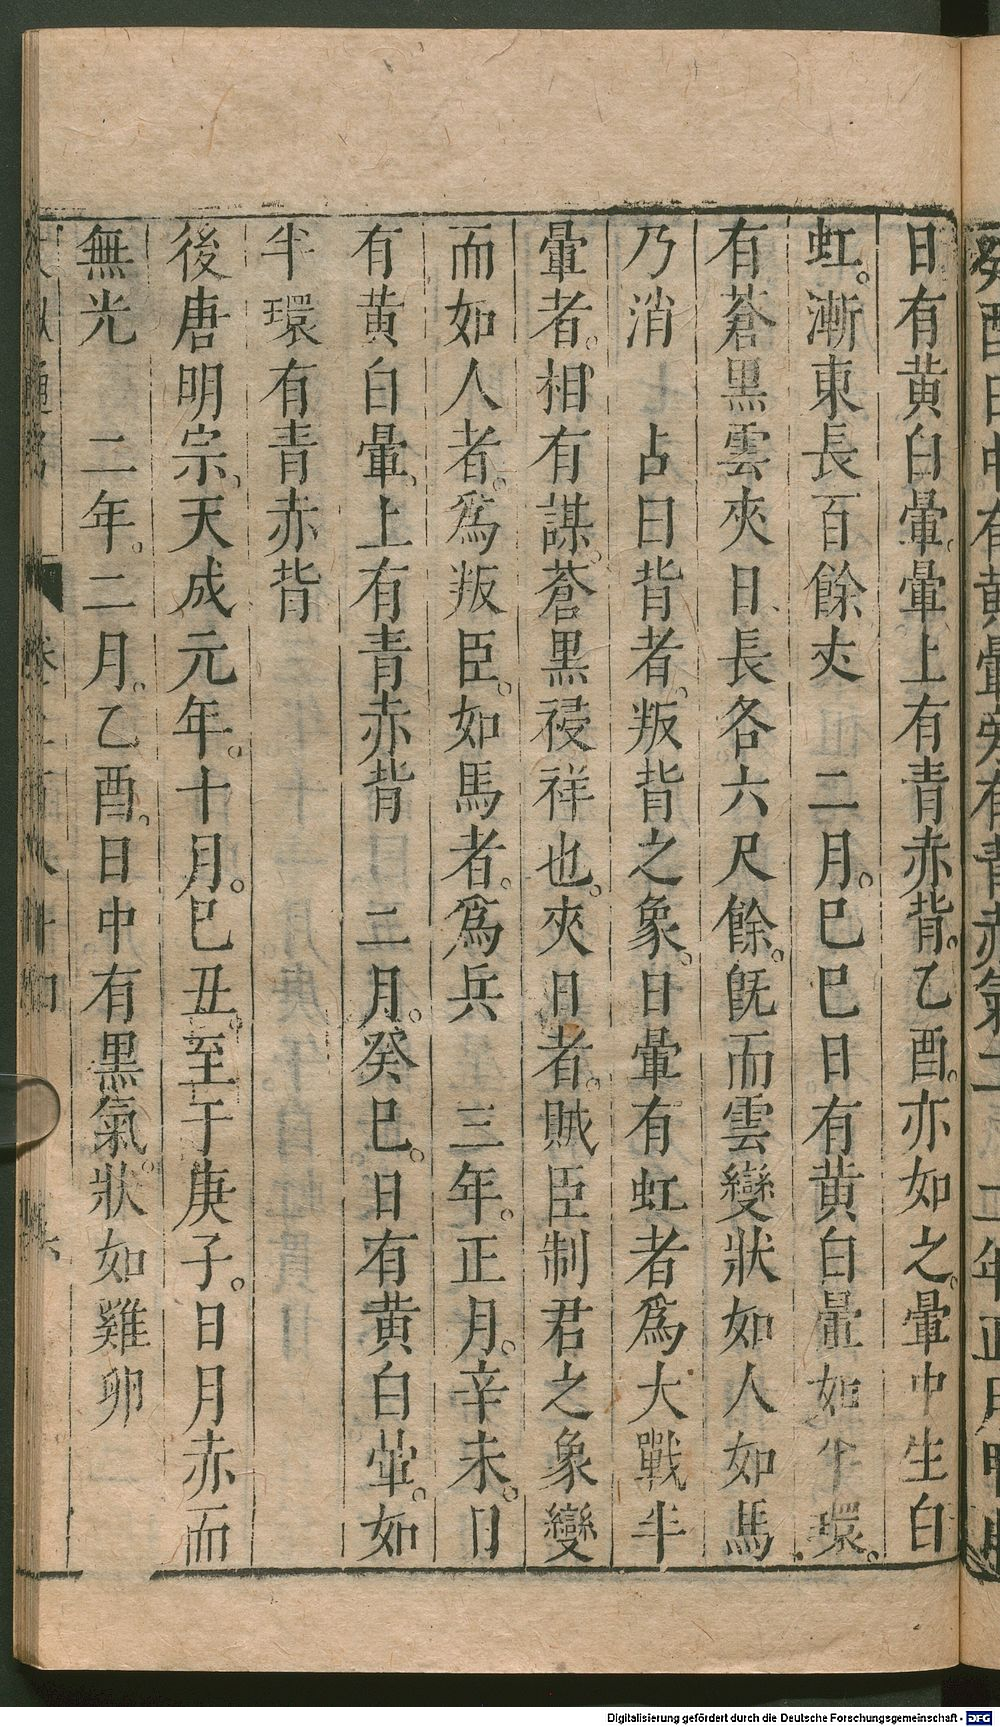 日有黃白暈。暈上有青赤背。乙酉。亦如之。暈中生白
虹。漸東長百餘夾　二月。巳巳日有黃白暈如半環。
有蒼黑雲夾日、長各六尺餘。既而雲變狀如人如馬
乃消　占曰背者。叛背之象。日暈有虹者爲大戰半
暈者。相有謀。蒼黑祲祥也。夾日者。賊臣制君之象變
而如人者。爲叛臣。如馬者。爲兵　三年。正月。辛未。日
有黃白暈、上有青赤背　二月。癸巳。日有黃白暈。如
半環有青赤背
後唐明宗、天成元年。十月。巳丑。至于庚子。日月赤而
無光　二年。二月。乙酉。日中有黑氣。狀如雞卵